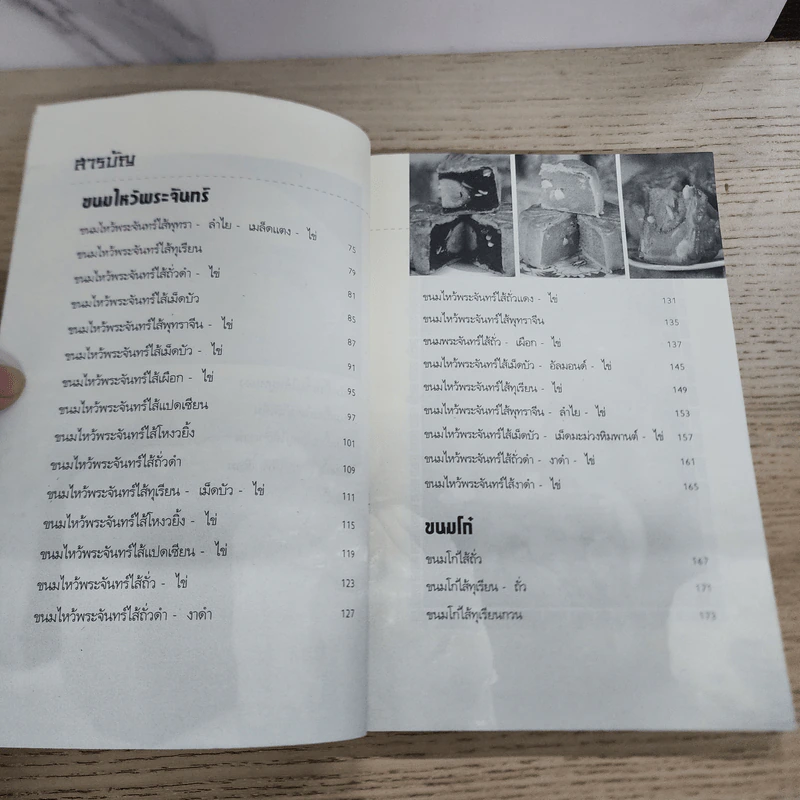 สารบัญ
ขนมไหว้พระจันทร์
ขนมไหว้พระจันทร์ไส้พุทรา - ลำไย - เมล็ดแตง - ไข่ 75
ขนมไหว้พระจันทร์ไส้ทุเรียน 79
ขนมไหว้พระจันทร์ไส้ถั่วดำ - ไข่ 81
ขนมไหว้พระจันทร์ไส้เม็ดบัว 85
ขนมไหว้พระจันทร์ไส้พุทราจีน - ไข่ 87
ขนมไหว้พระจันทร์ไส้เม็ดบัว - ไข่ 91
ขนมไหว้พระจันทร์ไส้เผือก - ไข่ 95
ขนมไหว้พระจันทร์ไส้แปดเซียน 97
ขนมไหว้พระจันทร์ไส้โหงวยิ้ง 101
ขนมไหว้พระจันทร์ไส้ถั่วดำ 109
ขนมไหว้พระจันทร์ไส้ทุเรียน - เม็ดบัว - ไข่ 111
ขนมไหว้พระจันทร์ไส้โหงวยิ้ง - ไข่ 115
ขนมไหว้พระจันทร์ไส้แปดเซียน - ไข่ 119
ขนมไหว้พระจันทร์ไส้ถั่ว - ไข่ 123
ขนมไหว้พระจันทร์ไส้ถั่วดำ - งาดำ 127
ขนมไหว้พระจันทร์ไส้ถั่วแดง - ไข่ 131
ขนมไหว้พระจันทร์ไส้พุทราจีน 135
ขนมพระจันทร์ไส้ถั่ว - เผือก - ไข่ 137
ขนมไหว้พระจันทร์ไส้เม็ดบัว - อัลมอนด์ - ไข่ 145
ขนมไหว้พระจันทร์ไส้ทุเรียน - ไข่ 149
ขนมไหว้พระจันทร์ไส้พุทราจีน - ลำไย - ไข่ 153
ขนมไหว้พระจันทร์ไส้เม็ดบัว - เม็ดมะม่วงหิมพานต์ - ไข่ 157
ขนมไหว้พระจันทร์ไส้ถั่วดำ - งาดำ - ไข่ 161
ขนมไหว้พระจันทร์ไส้งาดำ - ไข่ 165
ขนมโก๋
ขนมโก๋ไส้ถั่ว 167
ขนมโก๋ไส้ทุเรียน - ถั่ว 171
ขนมโก๋ไส้ทุเรียนกวน 173